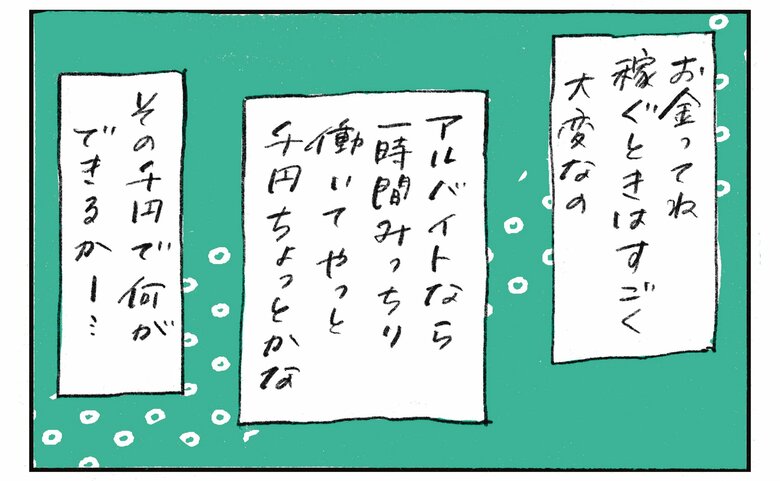 お金ってね
稼ぐときはすごく
大変なの
アルバイトなら
一時間みっちり
働いてやっと
千円ちょっとかな
その千円で何が
できるかー…